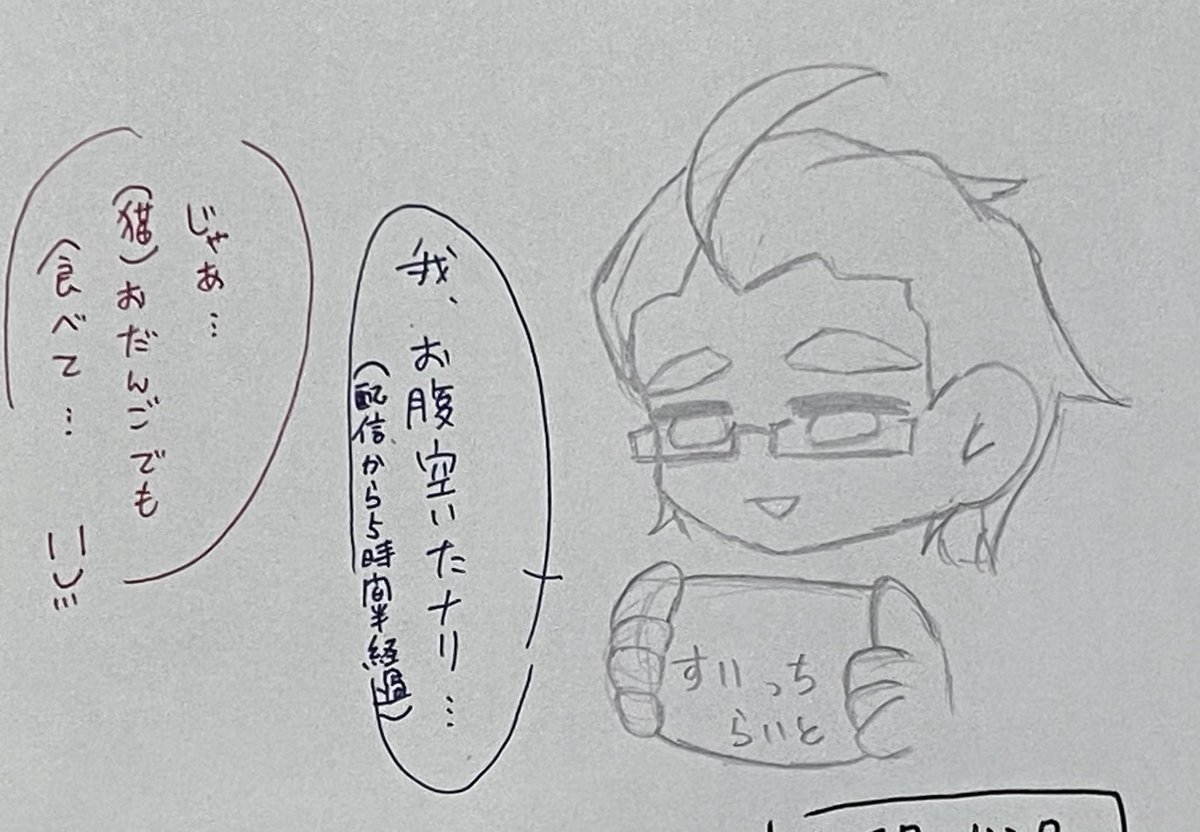 我、
お腹空いたナリ…
(配信から5時間半経過)
じゃあ…
(猫)おだんごでも
食べて…
すいっち
らいと